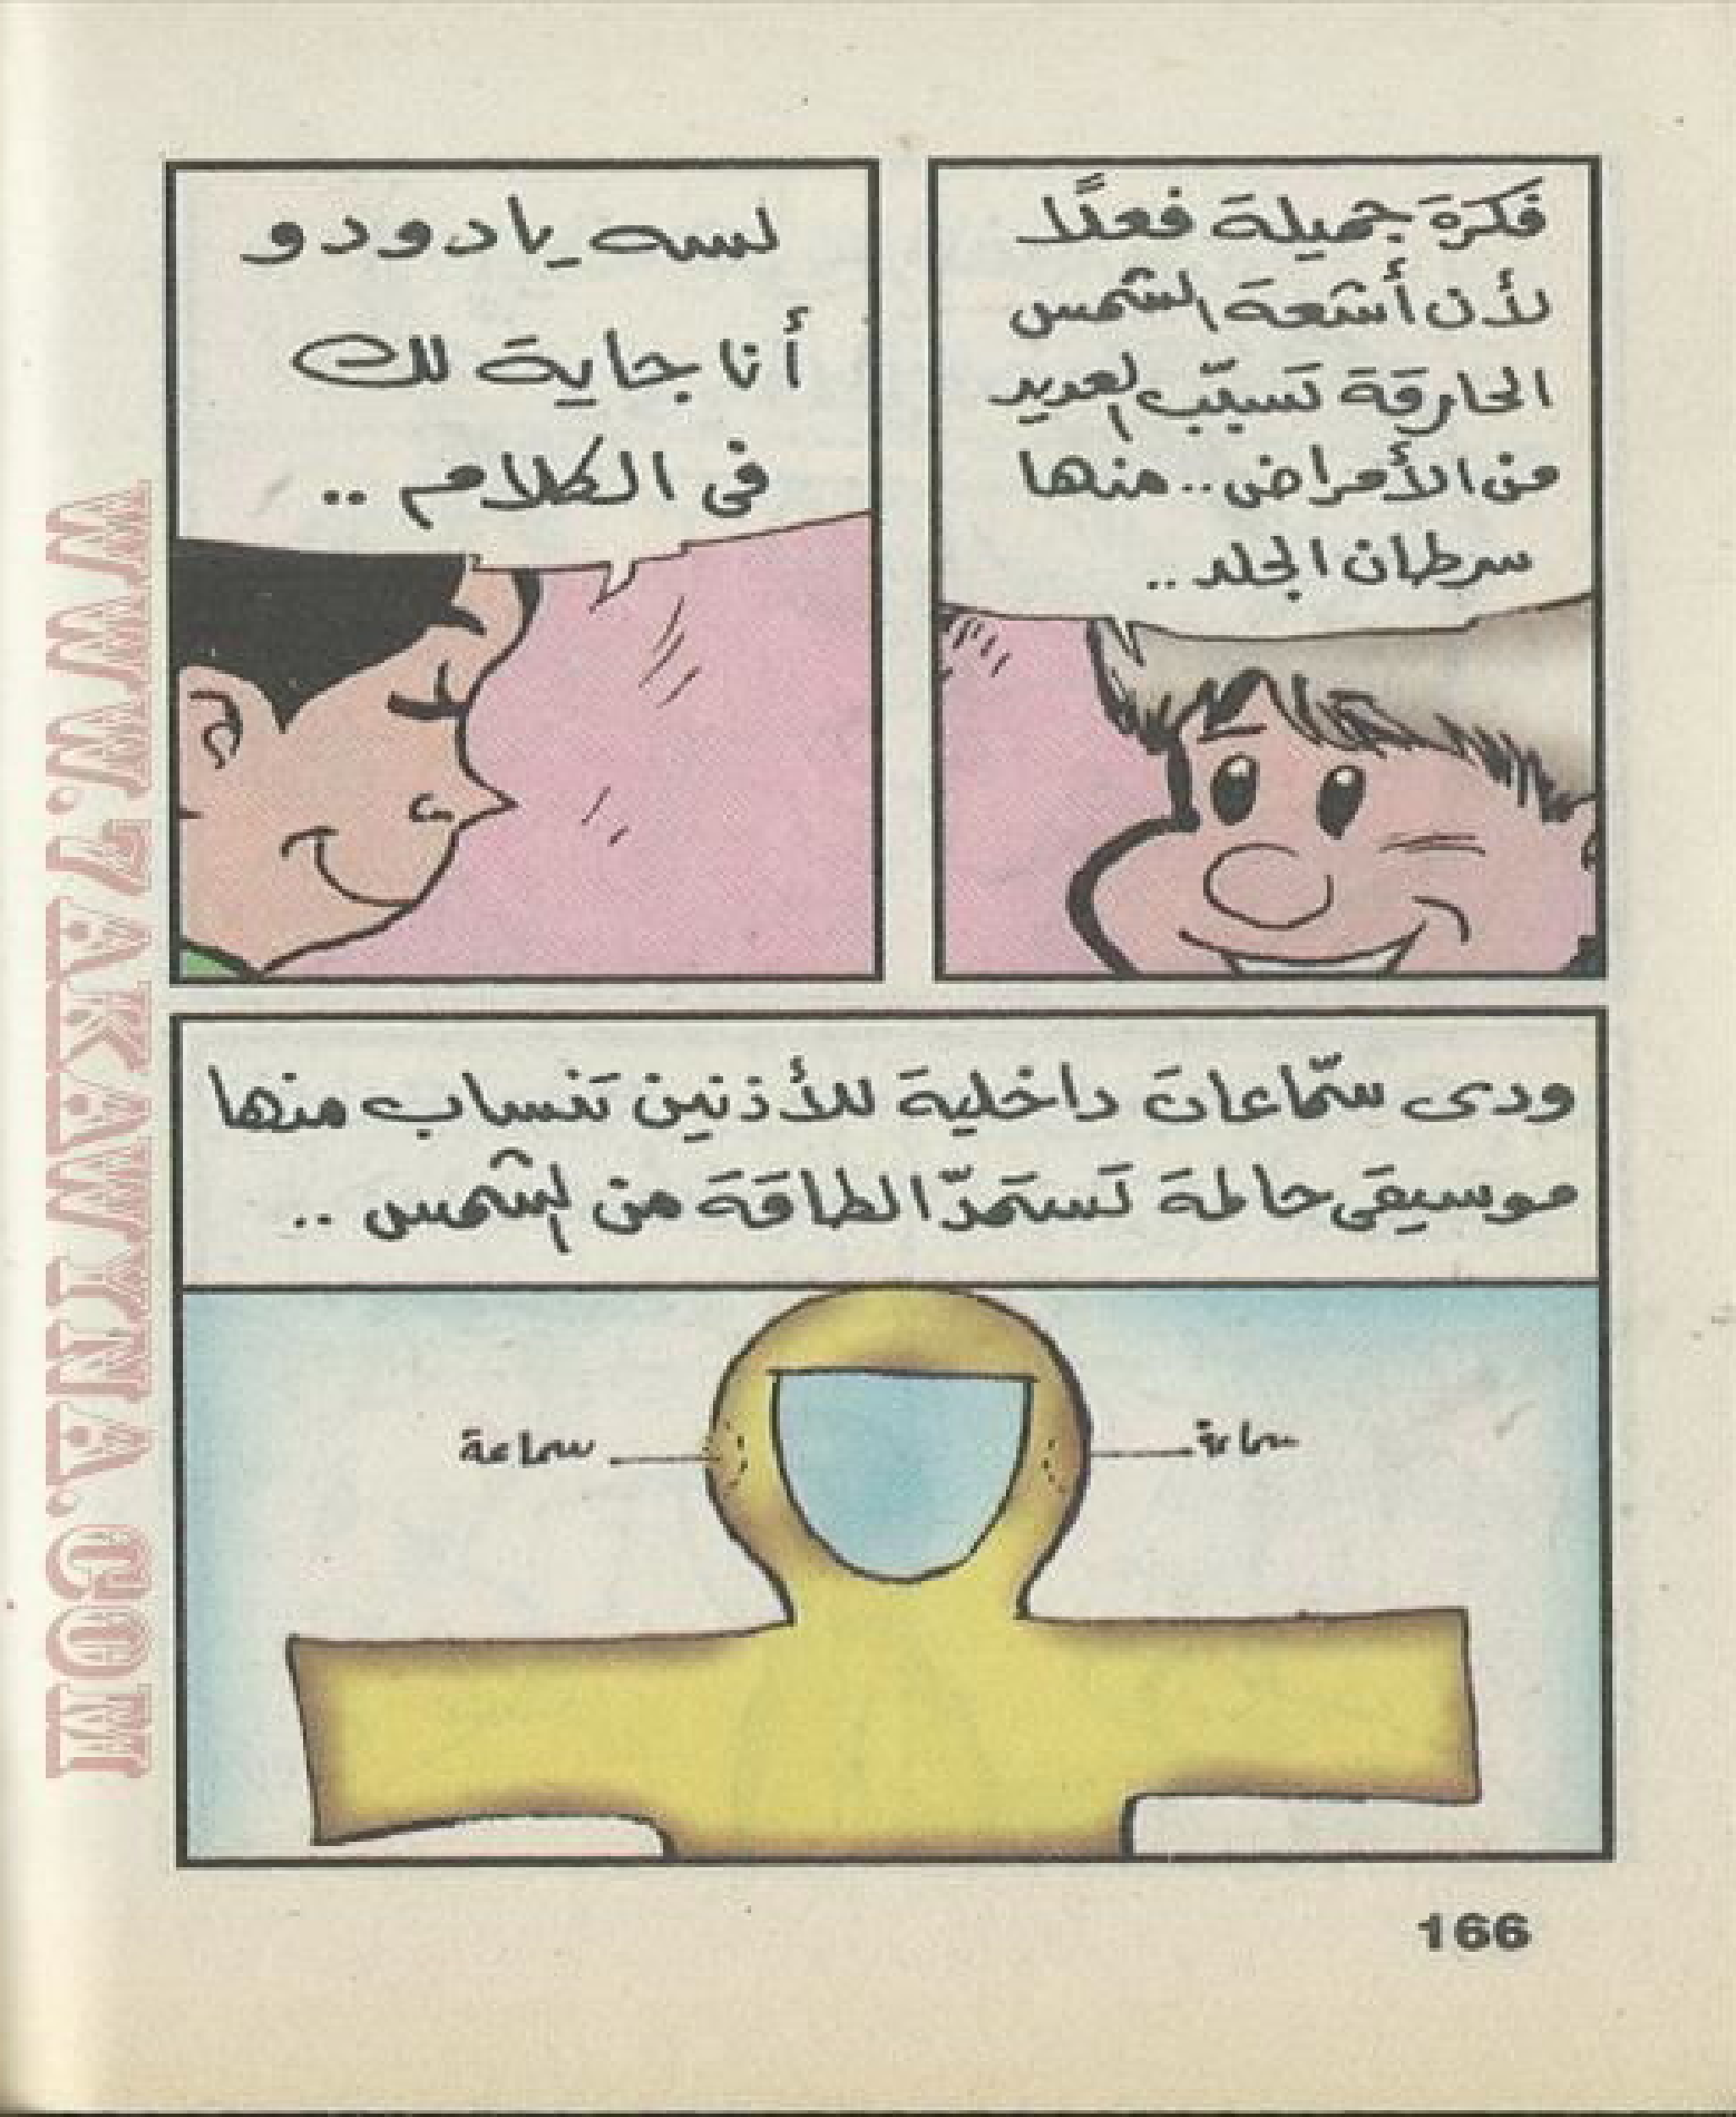 فكرة جميلة فعلًا
لأن أشعة الشمس
الحارقة تسبّب العديد
من الأمراض.. منها
سرطان الجلد..
لسه يا دودو
أنا جاية لك
في الكلام..
ودى سمّاعات داخلية للأذنين تنساب منها
موسيقى حالمة تستمدّ الطاقة من الشمس..
سماعة
سماعة
166